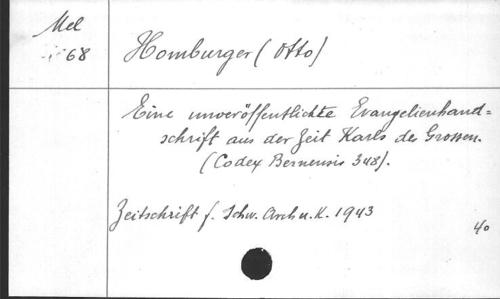 Mel
68
Homburger (Otto)
Eine unveröffentlichte Evangelienhand=
schrift aus der Zeit Karls des Grossen.
(Codex Bernensis 348).
Zeitschrift f. Schw. Arch u. K. 1943
40